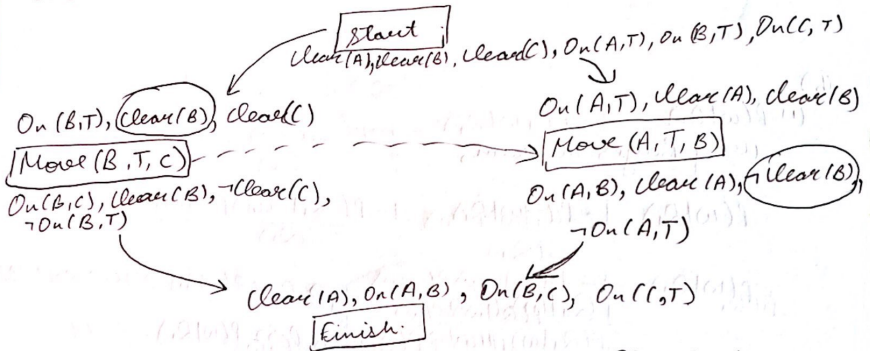 Start
Clear(A), Clear(B), Clear(C), On(A,T), On(B,T), On(C,T)
On(B,T), Clear(B), Clear(C)
Move(B,T,C)
On(B,C), Clear(B), ¬Clear(C),
¬On(B,T)
On(A,T), Clear(A), Clear(B)
Move(A,T,B)
On(A,B), Clear(A), ¬Clear(B),
¬On(A,T)
Clear(A), On(A,B), On(B,C), On(C,T)
Finish.